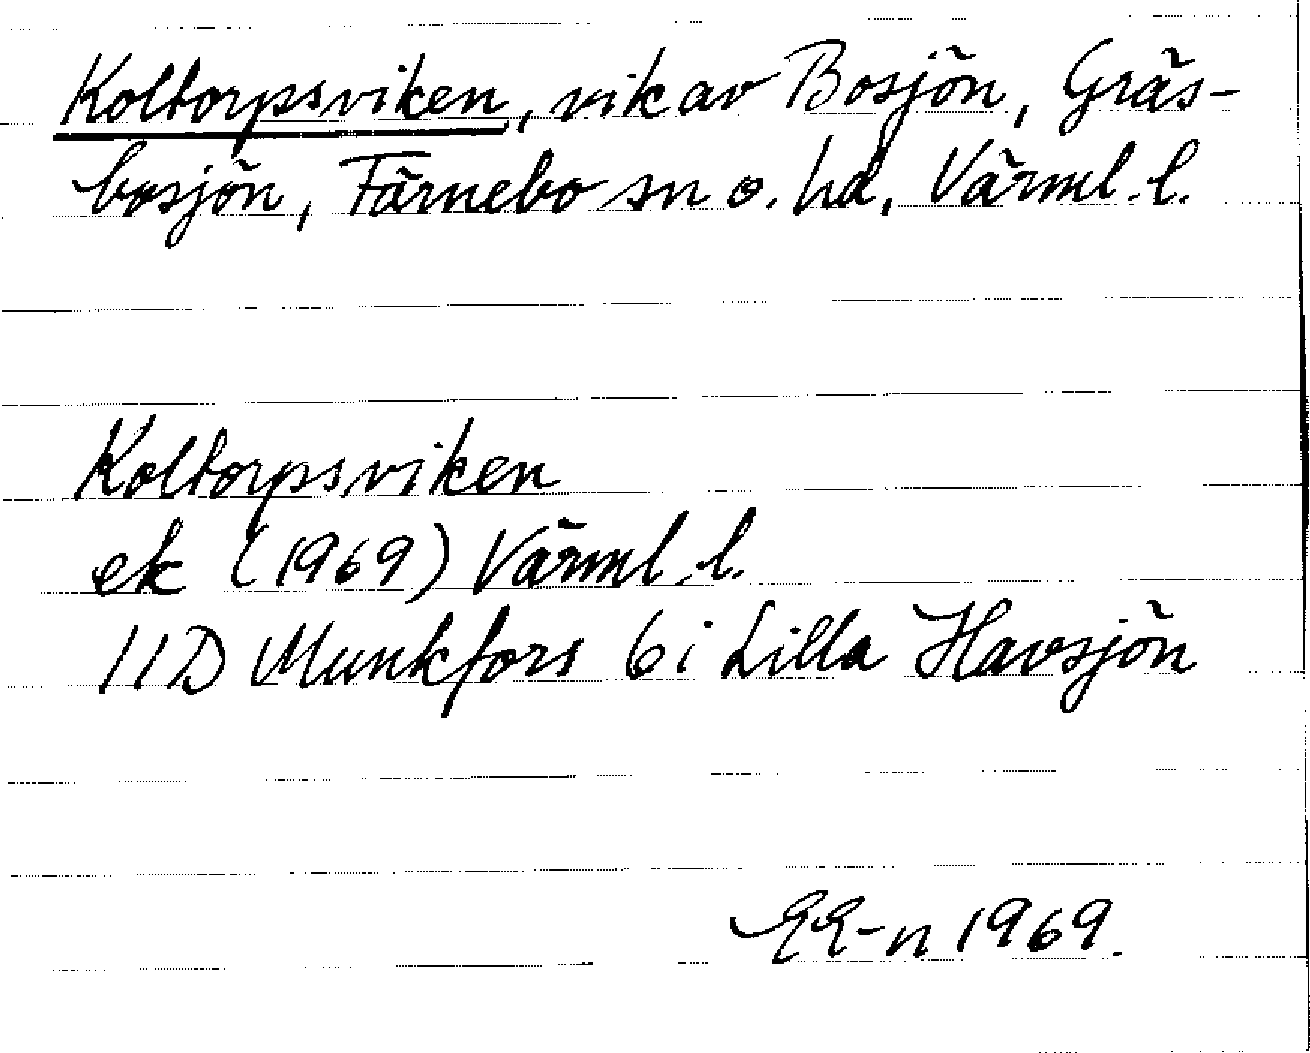 Koltorpsviken, vik av Bosjön, Gräs-
bosjön, Färnebo sn o. hd, Värml. l.
Koltorpsviken
ek (1969) Värml. l.
11D Munkfors 6i Lilla Havsjön
EE-n 1969.